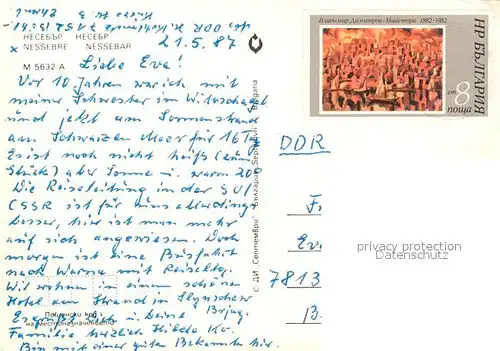 НЕСЕБЪР НЕСЕБЪР 21.5.87
NESSEBRE NESSEBAR
М 5632-А Liebe Eve!
Vor 10 Jahren war ich mit
meine Schwester in
und jetzt am Sonnenstrand
am Schwarzen Meer für 16 Tag.
Es ist noch nicht heiß (zum
Glück) aber Sonne u. warm 20°
Die Reiseleitung in der SU/
CSSR ist für uns allerdings
besser, hier ist man mehr
auf sich angewiesen. Doch
morgen ist eine Busfahrt
nach Warna mit Reiseltg.
Wir wohnen in einem schönen
Hotel am Strand in
Es grüßt Dich u. Deine
Familie herzlich Hilde Ko.
Bin mit einer guten Bekannten hier.
на местоназначението
с ДИ „Септември" България Bulgaria
Владимир Димитров - Майстора 1882-1982
НР БЪЛГАРИЯ
ст 8
поща
DDR
F
Ev
7813
B.
privacy protection
Datenschutz